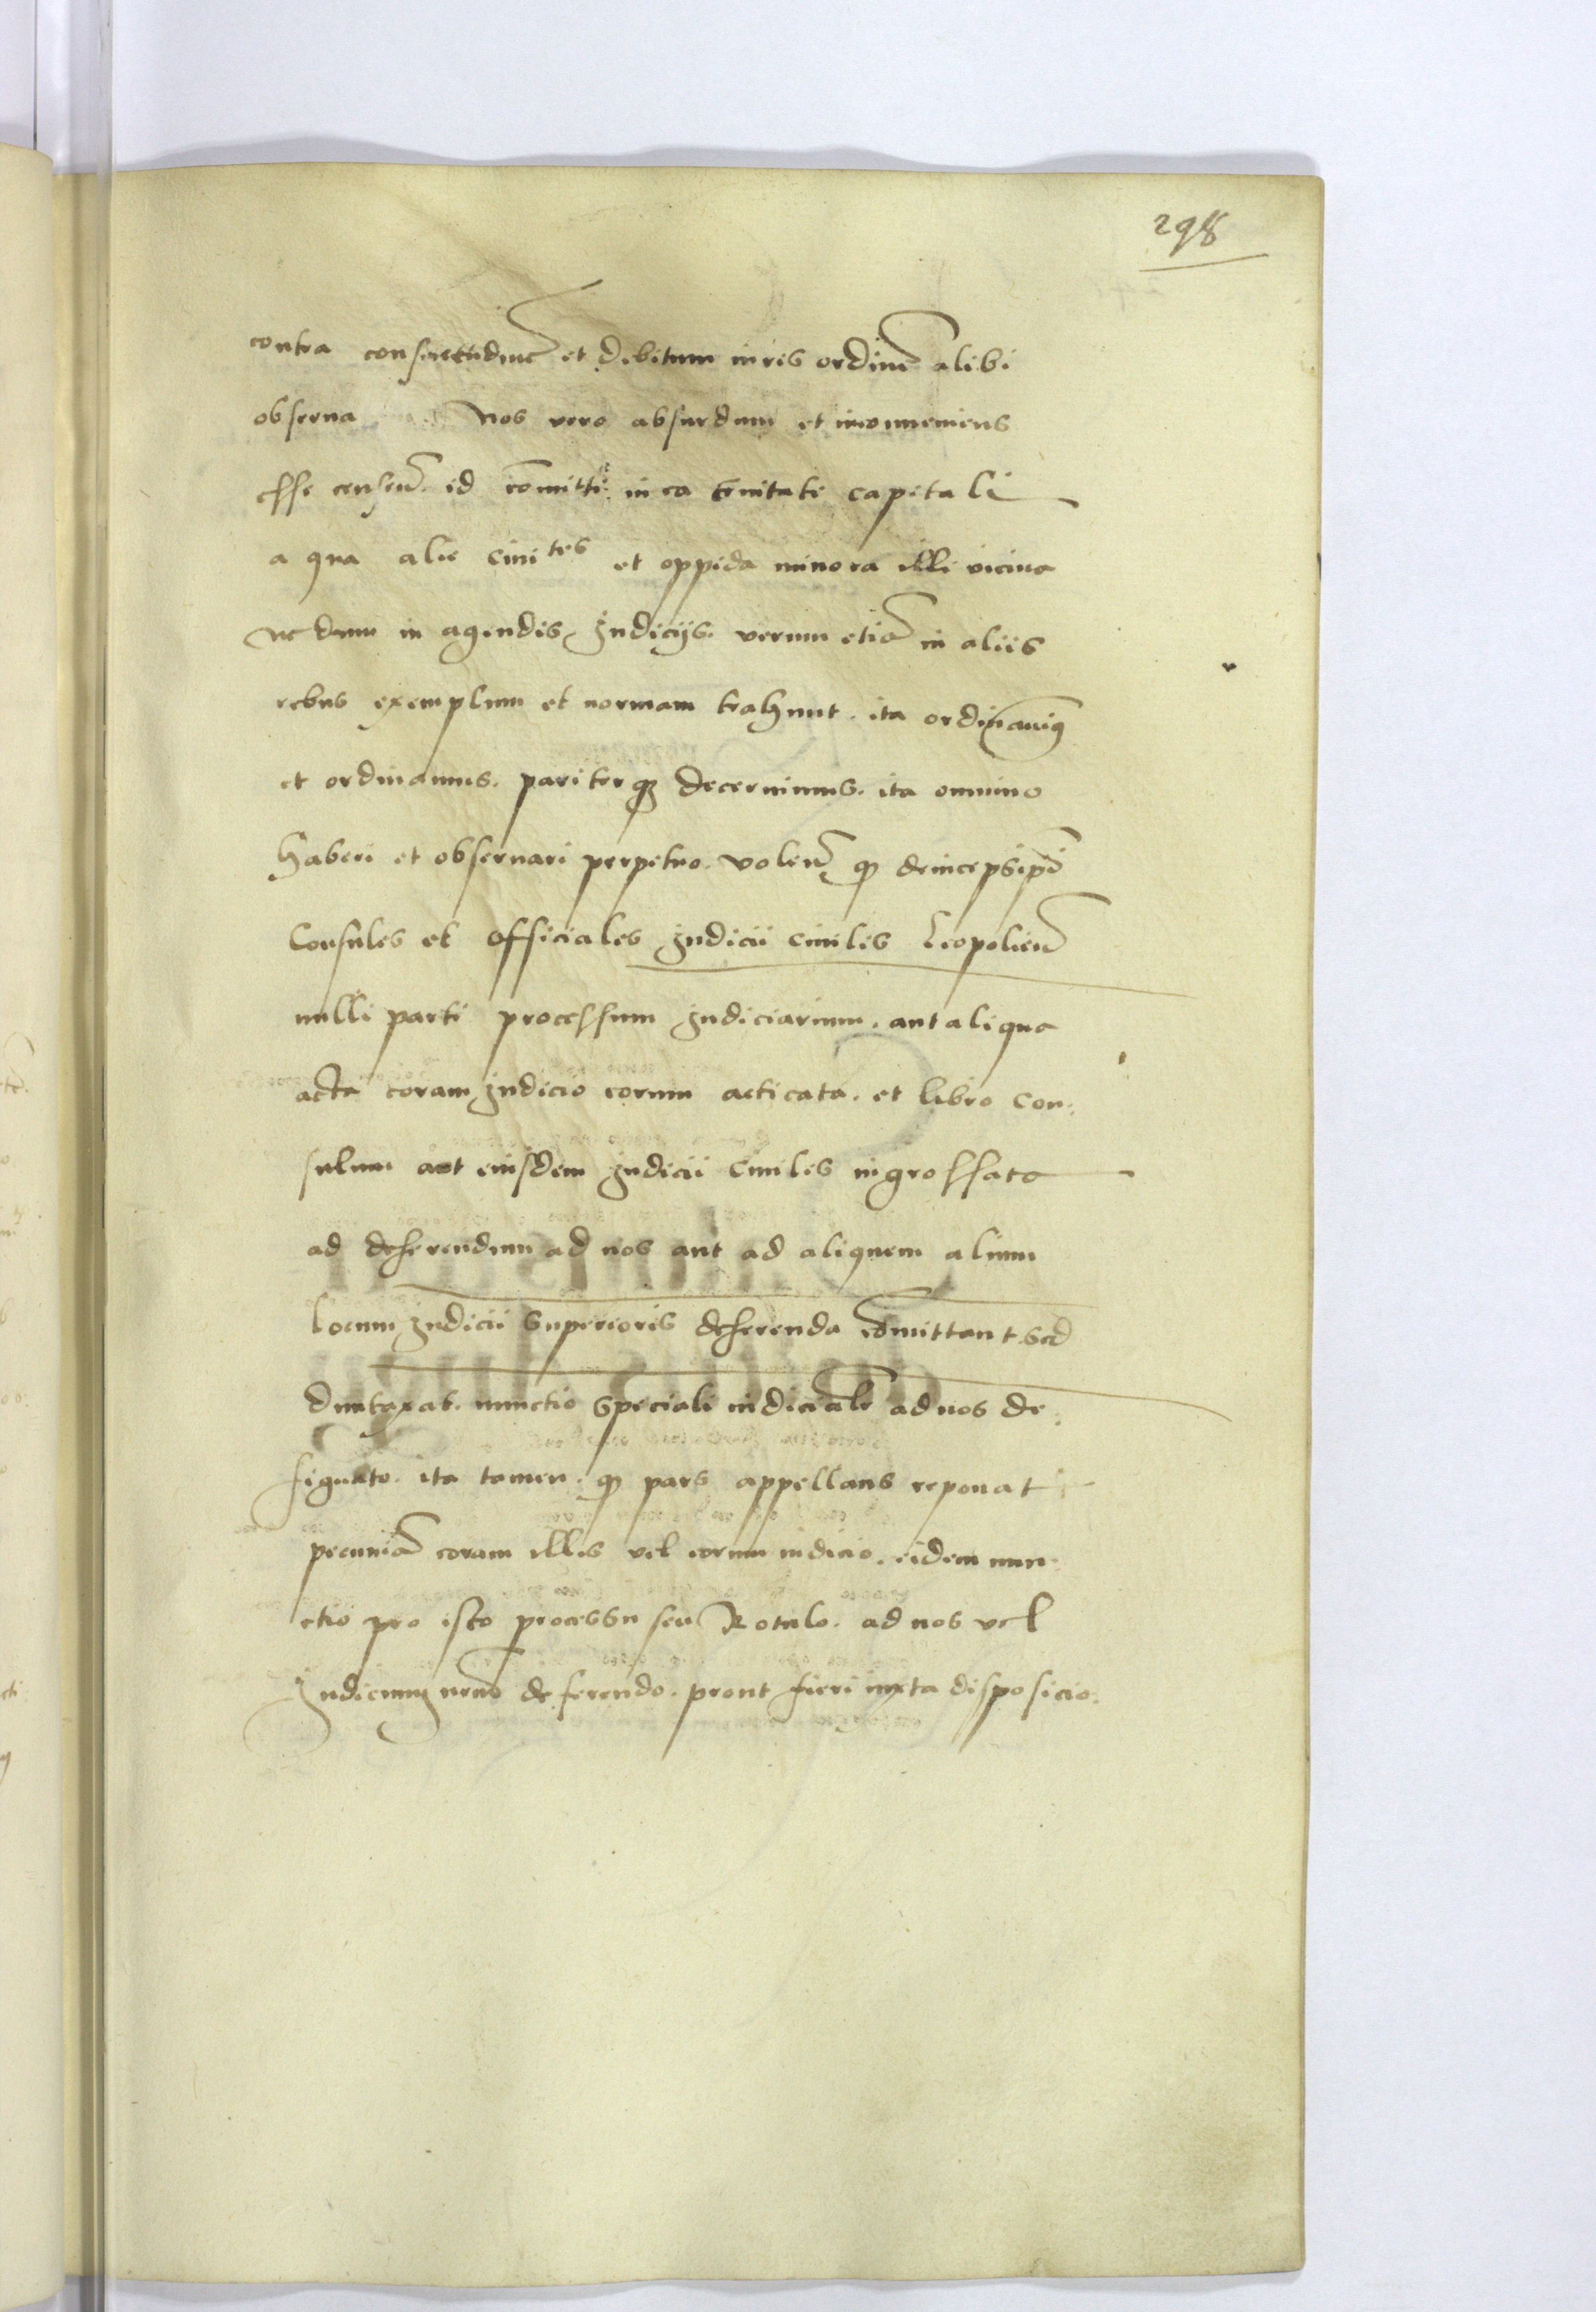 298
contra consuetudinē et debitum iuris ordinē alibi
obserua Nos vero absurdum et inconueniens
esse censeñ. id cōmitti in ea ciuitate capitali
a qua alie ciuites et oppida minora illi vicina
nedum in agendis Iudicijs. verum etiā in aliis
rebus exemplum et normam trahunt. ita ordinauimꝰ
et ordinamus. pariterqꝫ decernimus. ita omnino
haberi et obseruari perpetuo. voleñ. ꝙ deinceps ipsi
Consules et officiales Iudicii ciuilis Leopolieñ
nulli parti processum Iudiciarium. aut aliqua
acta coram Iudicio eorum acticata. et libro Con-
sulum aut eiusdem Iudicii ciuilis ingrossata
ad deferendum ad nos aut ad aliquem alium
locum Iudicii superioris deferenda cōmittant. sed
duntaxat. nunctio speciali iudiciali ad nos de-
signato. ita tamen. ꝙ pars appellans reponat
pecuniā coram illis vel eorum iudicio. eidem nun-
ctio pro isto processu seu Rotulo. ad nos vel
Iudicium nrm̄ deferendo. prout fieri iuxta disposicio-